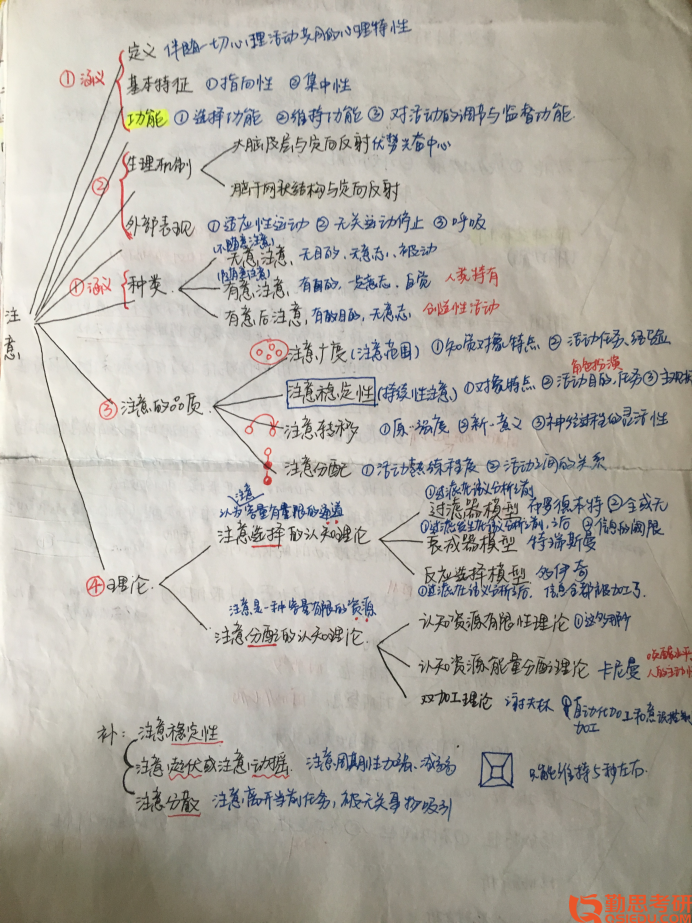 ①涵义
定义 伴随一切心理活动共同的心理特性
基本特征 ①指向性 ②集中性
功能 ①选择功能 ②维持功能 ③对活动的调节与监督功能
②
生理机制 大脑皮层与定向反射优势兴奋中心
脑干网状结构与定向反射
外部表现 ①适应性运动 ②无关运动停止 ③呼吸
(不随意注意)
①涵义 种类 无意注意, 无目的, 无意志, 被动
(随意注意)
有意注意, 有目的, 一定意志, 自觉 人类特有
有意后注意, 有目的, 无意志 创造性活动
注意
③注意的品质
注意广度(注意范围) ①知觉对象特点 ②活动任务、经验
角色扮演
注意稳定性(持续性注意) ①对象特点 ②活动目的、任务 ③主观
注意转移 ①原-强度 ②新-意义 ③神经过程的灵活性
注意分配 ①活动熟练程度 ②活动之间的关系
④理论
注意
认为容量有限的通道
注意选择的认知理论
①过滤在语义分析之前
过滤器模型 布罗德本特 ②全或无
①过滤发生在语义分析之前、之后 ②信息的阈限
衰减器模型 特瑞斯曼
反应选择模型 多伊奇
①过滤在语义分析之后 信息全部被加工了
注意是一种容量有限的资源
注意分配的认知理论
认知资源有限性理论 ①这多那少
认知资源能量分配理论 卡尼曼 唤醒水平
双加工理论 谢夫林 ①自动化加工和意识控制
加工
补: 注意稳定性
注意起伏或注意动摇 注意周期性加强、减弱 只能维持5秒左右
注意分散 注意离开当前任务, 被无关事物吸引
勤思考研